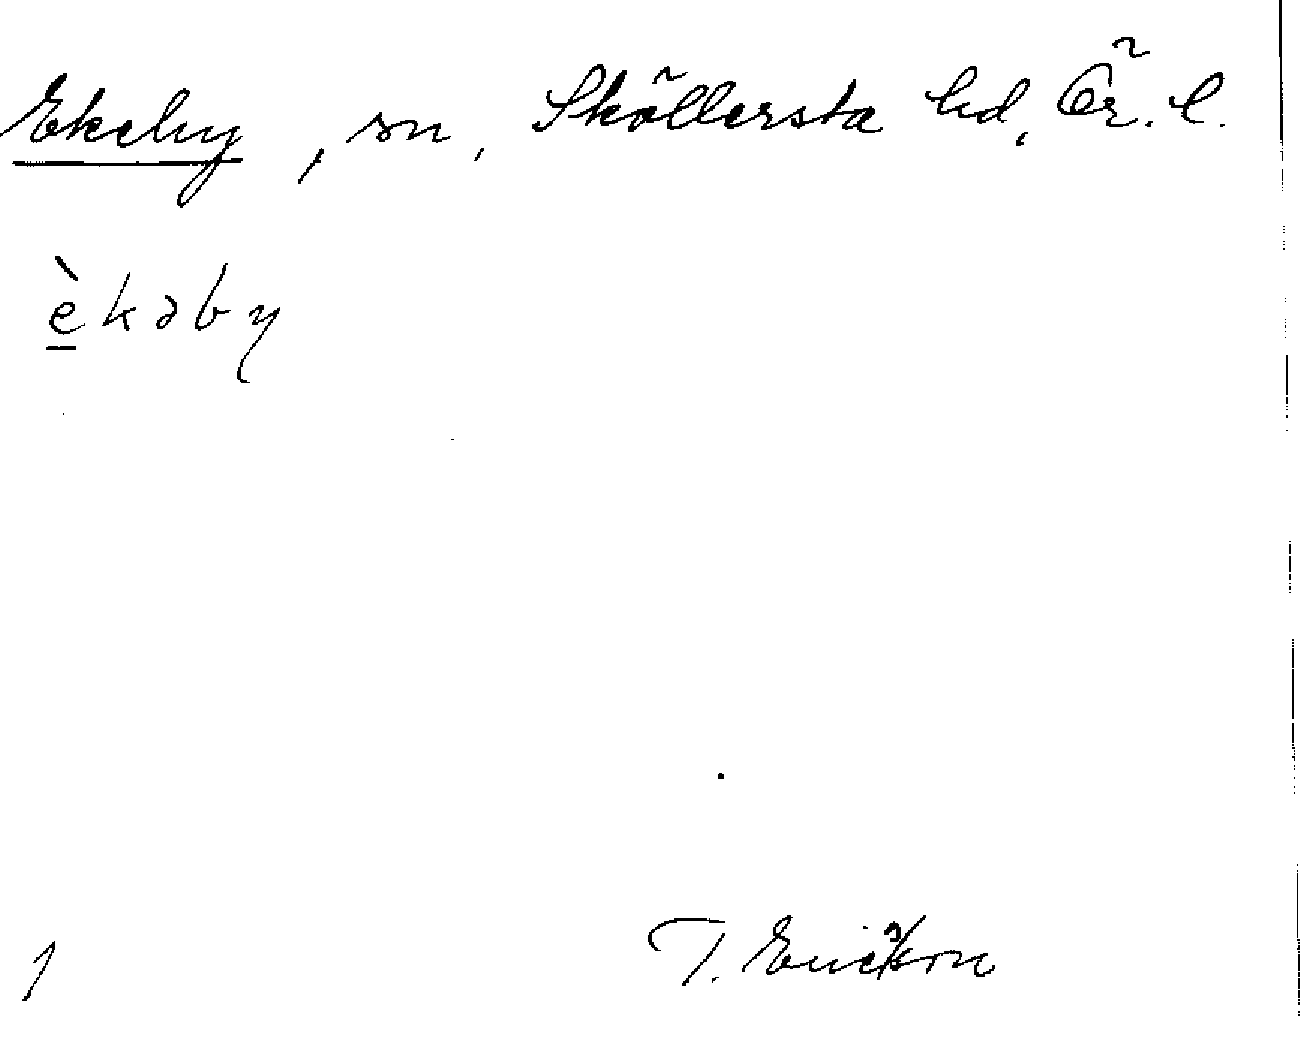 Ekeby, sn, Sköllersta hd, Ör. l.
èkəby
1
T. Ericsson